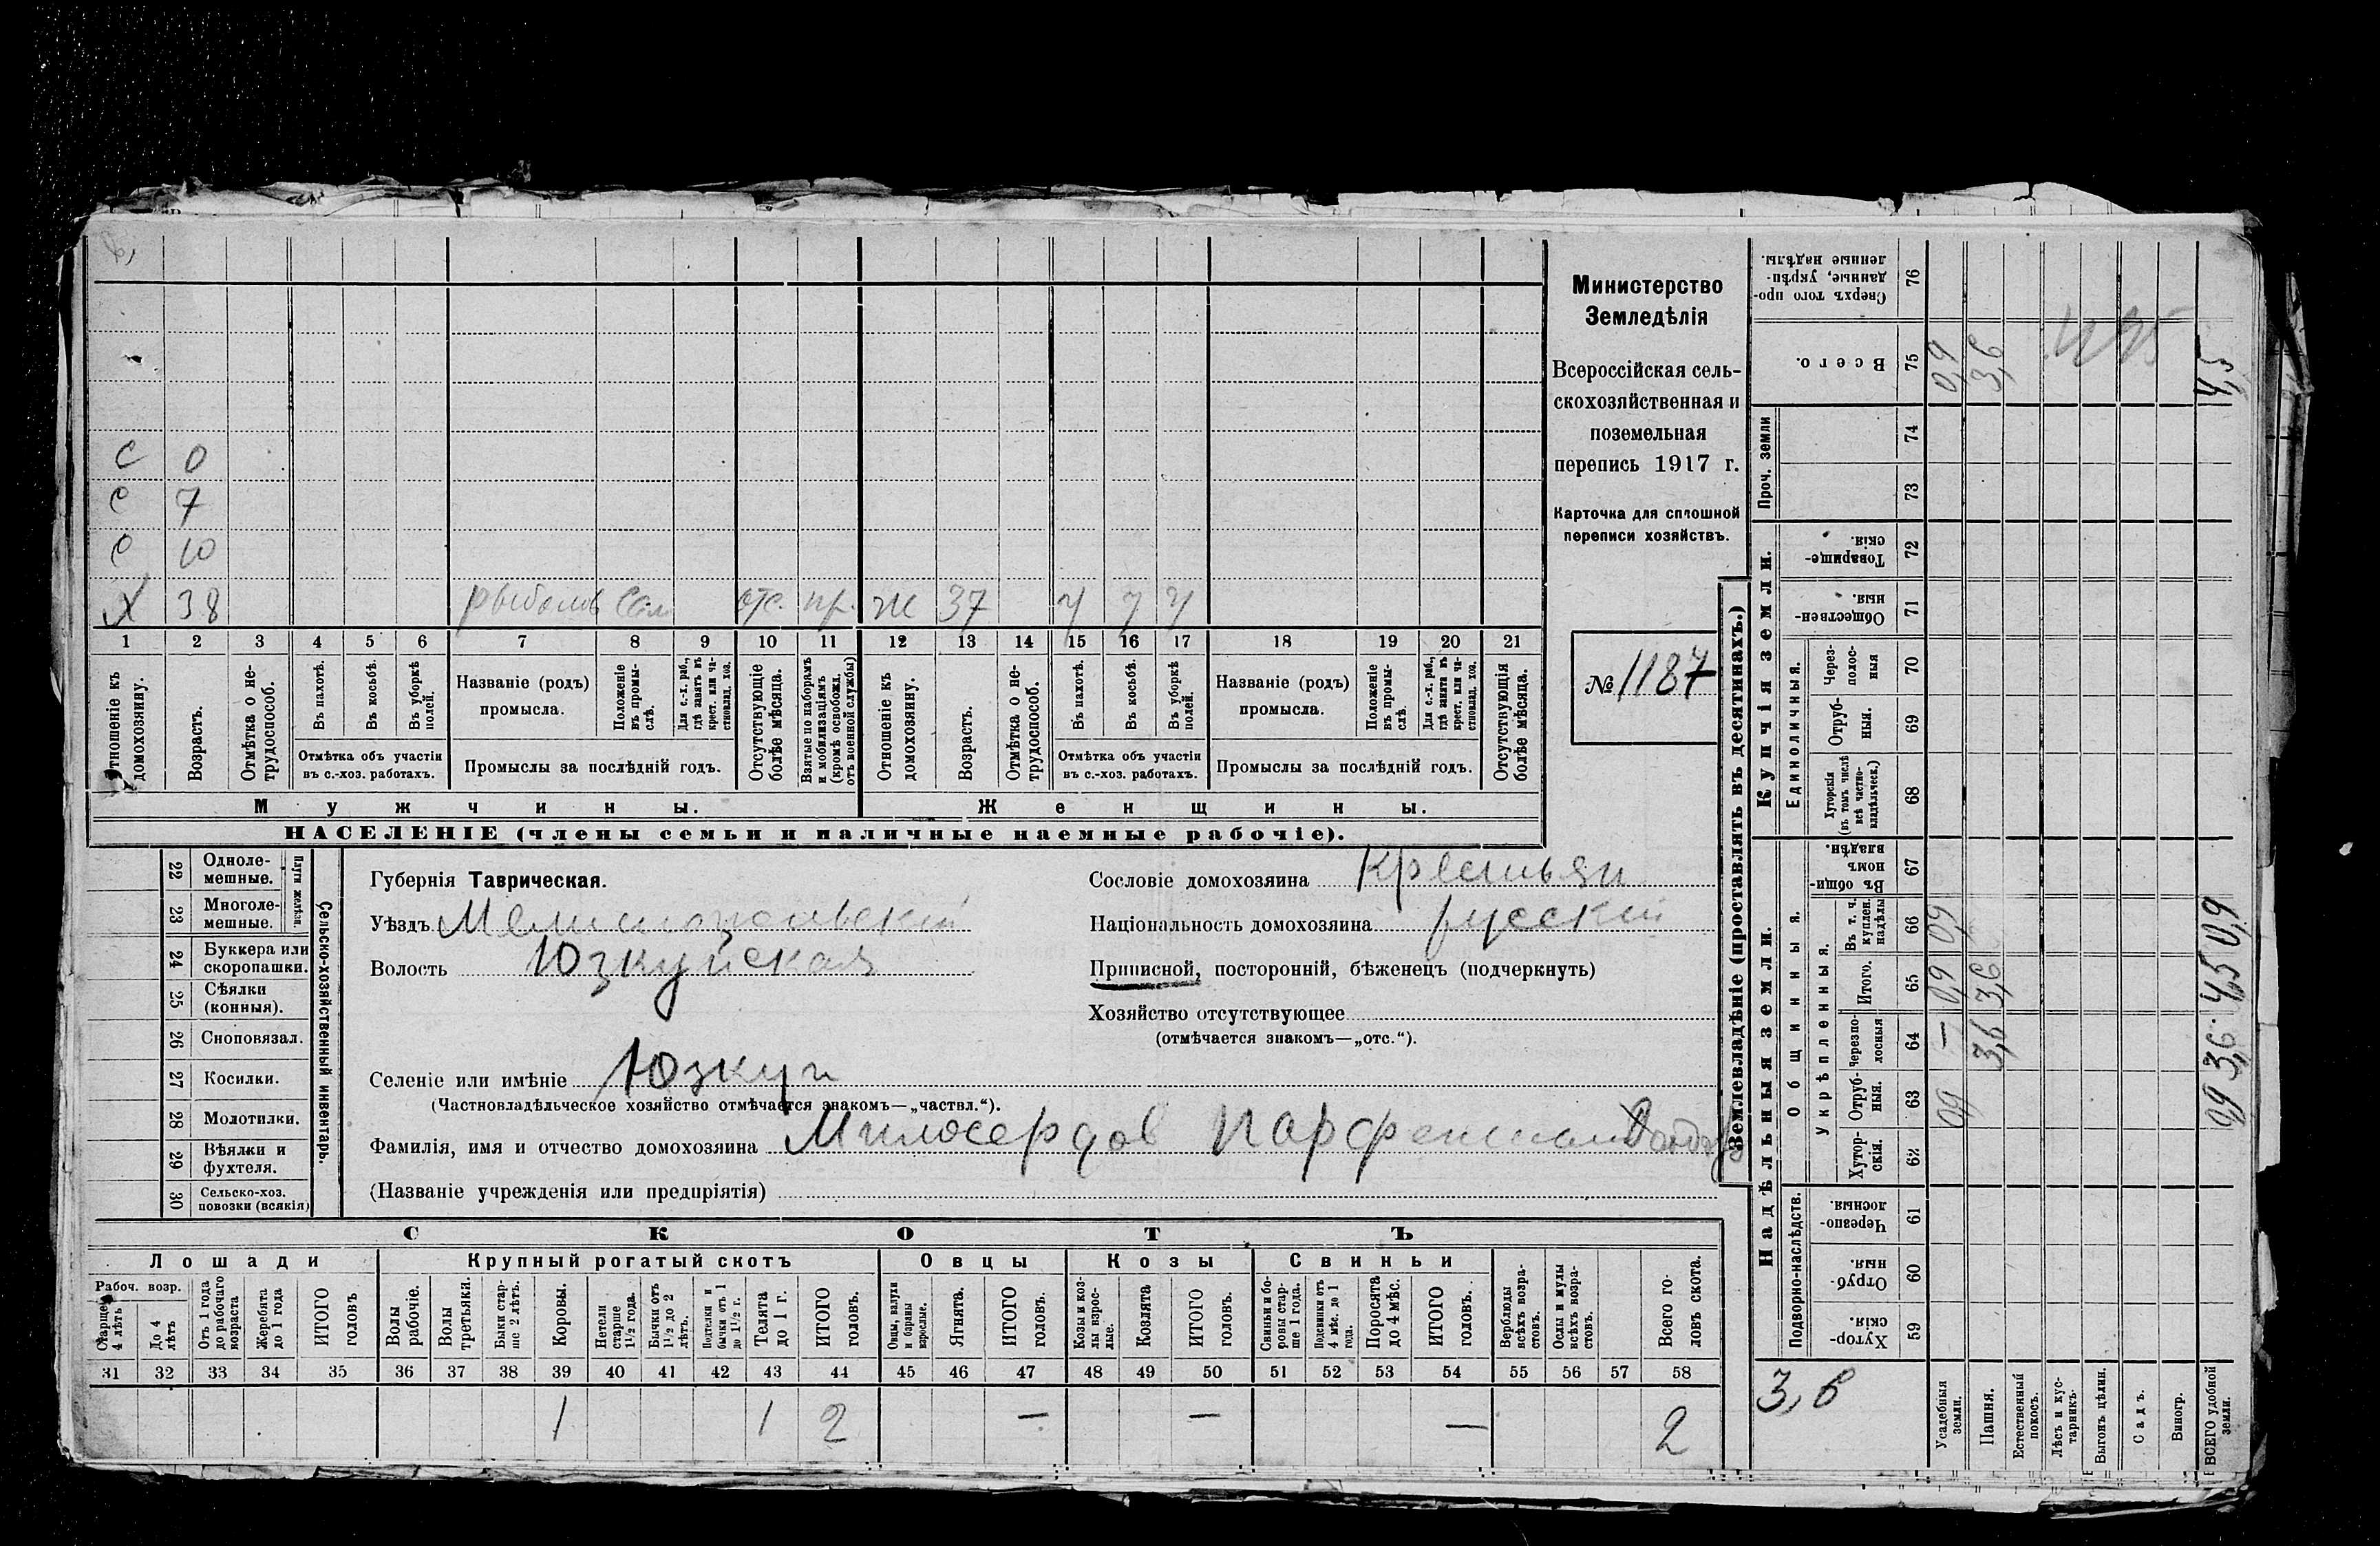 С 0
С 7
С 10
Х 38 рыболов Сам отс. пр. Ж 37 ч ч ч
1 2 3 4 5 6 7 8 9 10 11 12 13 14 15 16 17 18 19 20 21
Отношеніе къ домохозяину.
Возрастъ.
Отмѣтка о не-
трудоспособ.
Въ пахотѣ.
Въ косьбѣ.
Въ уборкѣ
полей.
Отмѣтка объ участіи
въ с.-хоз. работахъ.
Названіе (родъ)
промысла.
Положеніе
въ промы-
слѣ.
Для с.-х. раб.,
гдѣ занятъ въ
крест. или ча-
стновлад. хоз.
Промыслы за послѣдній годъ.
Отсутствующіе
болѣе мѣсяца.
Взятые по наборамъ
и мобилизаціямъ
(кромѣ освобожд.
отъ военной службы)
Отношеніе къ
домохозяину.
Возрастъ.
Отмѣтка о не-
трудоспособ.
Въ пахотѣ.
Въ косьбѣ.
Въ уборкѣ
полей.
Отмѣтка объ участіи
въ с.-хоз. работахъ.
Названіе (родъ)
промысла.
Положеніе
въ промы-
слѣ.
Для с.-х. раб.,
гдѣ занята въ
крест. или ча-
стновлад. хоз.
Промыслы за послѣдній годъ.
Отсутствующія
болѣе мѣсяца.
Мужчины.
Женщины.
НАСЕЛЕНІЕ (члены семьи и наличные наемные рабочіе).
Министерство
Земледѣлія
Всероссійская сель-
скохозяйственная и
поземельная
перепись 1917 г.
Карточка для сплошной
переписи хозяйствъ.
№ 1187
22 Одноле-
мешные.
23 Многоле-
мешные.
Плуги желѣзн.
24 Буккера или
скоропашки.
25 Сѣялки
(конныя).
26 Сноповязал.
27 Косилки.
28 Молотилки.
29 Вѣялки и
фухтеля.
30 Сельско-хоз.
повозки (всякія)
Сельско-хозяйственный инвентарь.
Губернія Таврическая.
Уѣздъ Мелитопольскій
Волость Юзкуйская
Селеніе или имѣніе Юзкуи
(Частновладѣльческое хозяйство отмѣчается знакомъ—„частвл.“).
Фамилія, имя и отчество домохозяина Милосердов
(Названіе учрежденія или предпріятія)
Сословіе домохозяина Крестьян
Національность домохозяина русскій
Приписной, посторонній, бѣженецъ (подчеркнуть)
Хозяйство отсутствующее
(отмѣчается знакомъ—„отс.“).
СКОТЪ
Лошади
Крупный рогатый скотъ
Овцы
Козы
Свиньи
Рабоч. возр.
Старше
4 лѣтъ
До 4
лѣтъ
Отъ 1 года
до рабочаго
возраста
Жеребята
до 1 года
ИТОГО
головъ
Волы
рабочіе.
Волы
третьяки.
Быки стар-
ше 2 лѣтъ.
Коровы.
Нетели
старше
1½ года.
Бычки отъ
1½ до 2
лѣтъ.
Подтелки и
бычки отъ 1
до 1½ г.
Телята
до 1 г.
ИТОГО
головъ.
Овцы, валухи
и бараны
взрослые.
Ягнята.
ИТОГО
головъ.
Козы и коз-
лы взрос-
лые.
Козлята
ИТОГО
головъ.
Свиньи и бо-
ровы стар-
ше 1 года.
Подсвинки отъ
4 мѣс. до 1
года.
Поросята
до 4 мѣс.
ИТОГО
головъ.
Верблюды
всѣхъ возра-
стовъ.
Ослы и мулы
всѣхъ возра-
стовъ.
Всего го-
ловъ скота.
31 32 33 34 35 36 37 38 39 40 41 42 43 44 45 46 47 48 49 50 51 52 53 54 55 56 57 58
1 1 2 — — — 2
Землевладѣніе (проставлять въ десятинахъ.)
Сверхъ того про-
данные, укрѣп-
ленные надѣлы. 76
Всего. 75 0,9 3,6 4,5
Проч. земли 74 73
Купчія земли.
Товарище-
скія. 72
Обществен-
ныя. 71
Единоличныя.
Через-
полос-
ныя 70
Отруб-
ныя. 69
Хуторскія
(въ томъ числѣ
всѣ частно-
владѣльческ.) 68
Надѣльныя земли.
Общинныя.
Въ общи-
номъ
владѣн. 67
укрѣпленныя.
Въ т. ч.
куплен.
надѣлы 66 0,9 0,9
Итого. 65 0,9 3,6 4,5
Черезпо-
лосныя 64 — 3,6 3,6
Отруб-
ныя. 63 09 09
Хутор-
скія. 62
Подворно-наслѣдств.
Черезпо-
лосныя. 61
Отруб-
ныя. 60
Хутор-
скія. 59
3,6
Усадебныя
земли.
Пашня.
Естественный
покосъ.
Лѣсъ и кус-
тарникъ.
Выгонъ цѣлин.
Садъ.
Виногр.
ВСЕГО удобной
земли.